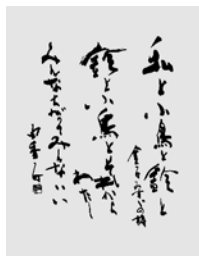 私と小鳥と鈴と
金子みすゞの詩
鈴と小鳥とそれから
わたし
みんなちがってみんないい